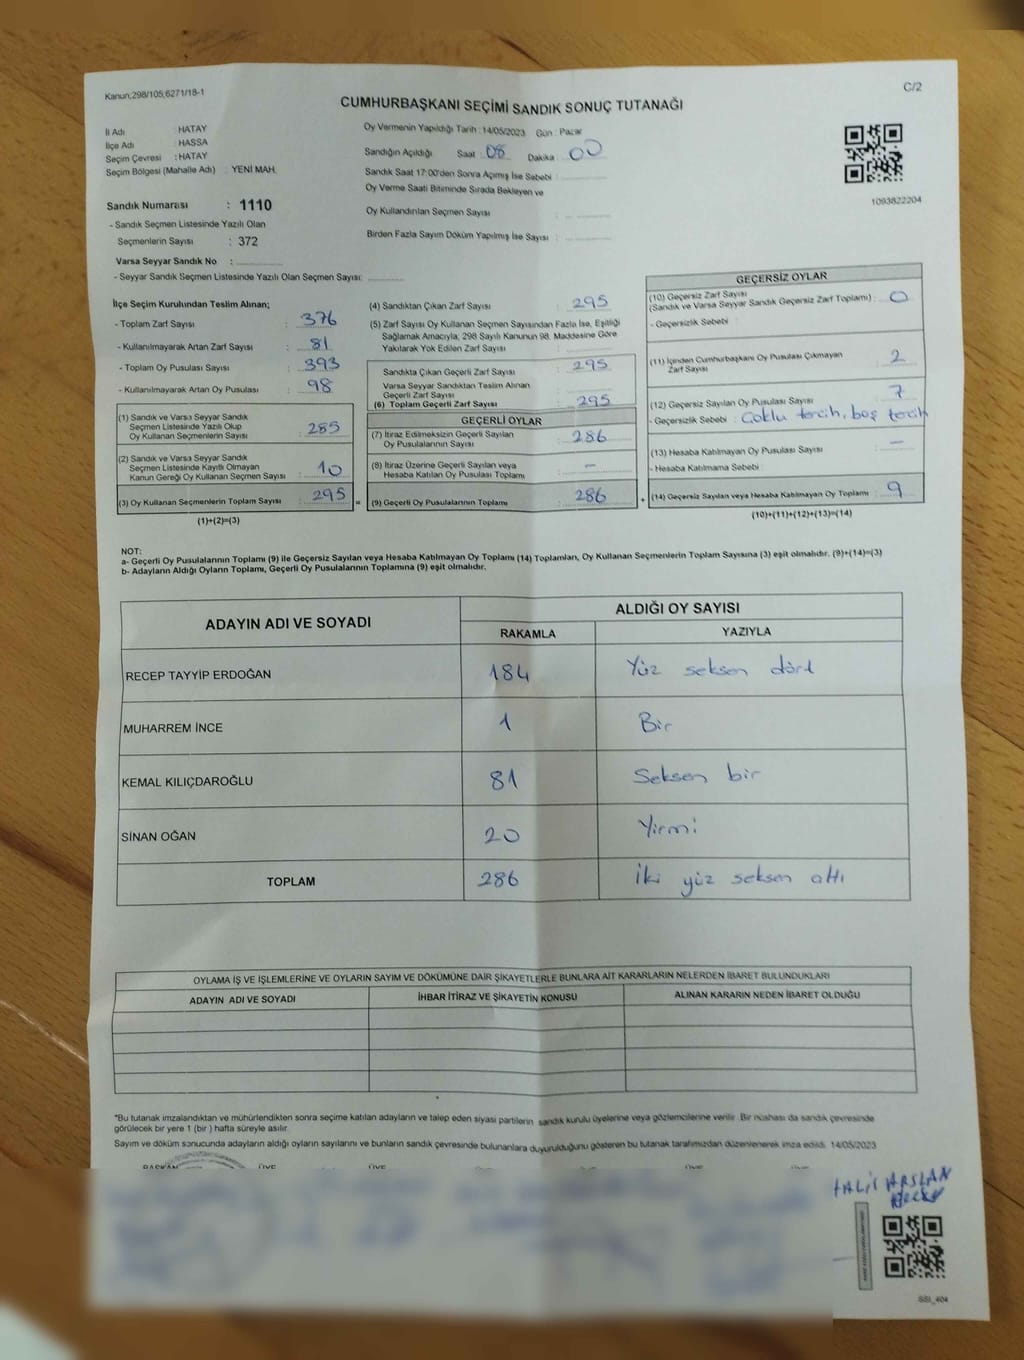 Kanun;298/105;6271/18-1
C/2
CUMHURBAŞKANI SEÇİMİ SANDIK SONUÇ TUTANAĞI
İl Adı : HATAY
İlçe Adı : HASSA
Seçim Çevresi : HATAY
Seçim Bölgesi (Mahalle Adı) : YENİ MAH.
Oy Vermenin Yapıldığı Tarih : 14/05/2023 Gün : Pazar
Sandığın Açıldığı Saat : 08 Dakika : 00
Sandık Saat 17:00'den Sonra Açımış İse Sebebi :
Oy Verme Saati Bitiminde Sırada Bekleyen ve
Oy Kullandırılan Seçmen Sayısı :
Birden Fazla Sayım Döküm Yapılmış İse Sayısı :
1093822204
Sandık Numarası : 1110
- Sandık Seçmen Listesinde Yazılı Olan
Seçmenlerin Sayısı : 372
Varsa Seyyar Sandık No :
- Seyyar Sandık Seçmen Listesinde Yazılı Olan Seçmen Sayısı:
İlçe Seçim Kurulundan Teslim Alınan;
- Toplam Zarf Sayısı : 376
- Kullanılmayarak Artan Zarf Sayısı : 81
- Toplam Oy Pusulası Sayısı : 393
- Kullanılmayarak Artan Oy Pusulası : 98
(1) Sandık ve Varsa Seyyar Sandık
Seçmen Listesinde Yazılı Olup
Oy Kullanan Seçmenlerin Sayısı : 285
(2) Sandık ve Varsa Seyyar Sandık
Seçmen Listesinde Kayıtlı Olmayan
Kanun Gereği Oy Kullanan Seçmen Sayısı : 10
(3) Oy Kullanan Seçmenlerin Toplam Sayısı : 295 =
(1)+(2)=(3)
(4) Sandıktan Çıkan Zarf Sayısı : 295
(5) Zarf Sayısı Oy Kullanan Seçmen Sayısından Fazla İse, Eşitliği
Sağlamak Amacıyla; 298 Sayılı Kanunun 98. Maddesine Göre
Yakılarak Yok Edilen Zarf Sayısı :
Sandıkta Çıkan Geçerli Zarf Sayısı : 295
Varsa Seyyar Sandıktan Teslim Alınan
Geçerli Zarf Sayısı :
(6) Toplam Geçerli Zarf Sayısı : 295
GEÇERLİ OYLAR
(7) İtiraz Edilmeksizin Geçerli Sayılan
Oy Pusulalarının Sayısı : 286
(8) İtiraz Üzerine Geçerli Sayılan veya
Hesaba Katılan Oy Pusulası Toplamı : -
(9) Geçerli Oy Pusulalarının Toplamı : 286 +
GEÇERSİZ OYLAR
(10) Geçersiz Zarf Sayısı
(Sandık ve Varsa Seyyar Sandık Geçersiz Zarf Toplamı) : 0
- Geçersizlik Sebebi :
(11) İçinden Cumhurbaşkanı Oy Pusulası Çıkmayan
Zarf Sayısı : 2
(12) Geçersiz Sayılan Oy Pusulası Sayısı : 7
- Geçersizlik Sebebi : Çoklu tercih, boş tercih
(13) Hesaba Katılmayan Oy Pusulası Sayısı : -
- Hesaba Katılmama Sebebi :
(14) Geçersiz Sayılan veya Hesaba Katılmayan Oy Toplamı : 9
(10)+(11)+(12)+(13)=(14)
NOT:
a- Geçerli Oy Pusulalarının Toplamı (9) ile Geçersiz Sayılan veya Hesaba Katılmayan Oy Toplamı (14) Toplamları, Oy Kullanan Seçmenlerin Toplam Sayısına (3) eşit olmalıdır. (9)+(14)=(3)
b- Adayların Aldığı Oyların Toplamı, Geçerli Oy Pusulalarının Toplamına (9) eşit olmalıdır.
ADAYIN ADI VE SOYADI
ALDIĞI OY SAYISI
RAKAMLA YAZIYLA
RECEP TAYYİP ERDOĞAN 184 Yüz seksen dört
MUHARREM İNCE 1 Bir
KEMAL KILIÇDAROĞLU 81 Seksen bir
SİNAN OĞAN 20 Yirmi
TOPLAM 286 İki yüz seksen altı
OYLAMA İŞ VE İŞLEMLERİNE VE OYLARIN SAYIM VE DÖKÜMÜNE DAİR ŞİKAYETLERLE BUNLARA AİT KARARLARIN NELERDEN İBARET BULUNDUKLARI
ADAYIN ADI VE SOYADI İHBAR İTİRAZ VE ŞİKAYETİN KONUSU ALINAN KARARIN NEDEN İBARET OLDUĞU
*Bu tutanak imzalandıktan ve mühürlendikten sonra seçime katılan adayların ve talep eden siyasi partilerin sandık kurulu üyelerine veya gözlemcilerine verilir. Bir nüshası da sandık çevresinde
görülecek bir yere 1 (bir ) hafta süreyle asılır.
Sayım ve döküm sonucunda adayların aldığı oyların sayılarını ve bunların sandık çevresinde bulunanlara duyurulduğunu gösteren bu tutanak tarafımızdan düzenlenerek imza edildi. 14/05/2023
BAŞKAN ÜYE ÜYE
HALİS ARSLAN
SSI_404